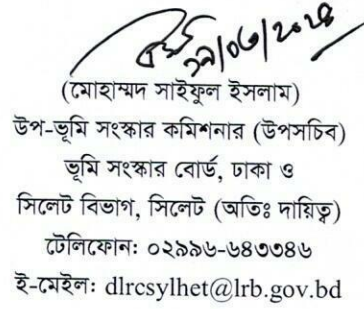 ২৯/০৬/২০২৪
(মোহাম্মদ সাইফুল ইসলাম)
উপ-ভূমি সংস্কার কমিশনার (উপসচিব)
ভূমি সংস্কার বোর্ড, ঢাকা ও
সিলেট বিভাগ, সিলেট (অতিঃ দায়িত্ব)
টেলিফোন: ০২৯৯৬-৬৪৩৩৪৬
ই-মেইল: dlrcsylhet@lrb.gov.bd